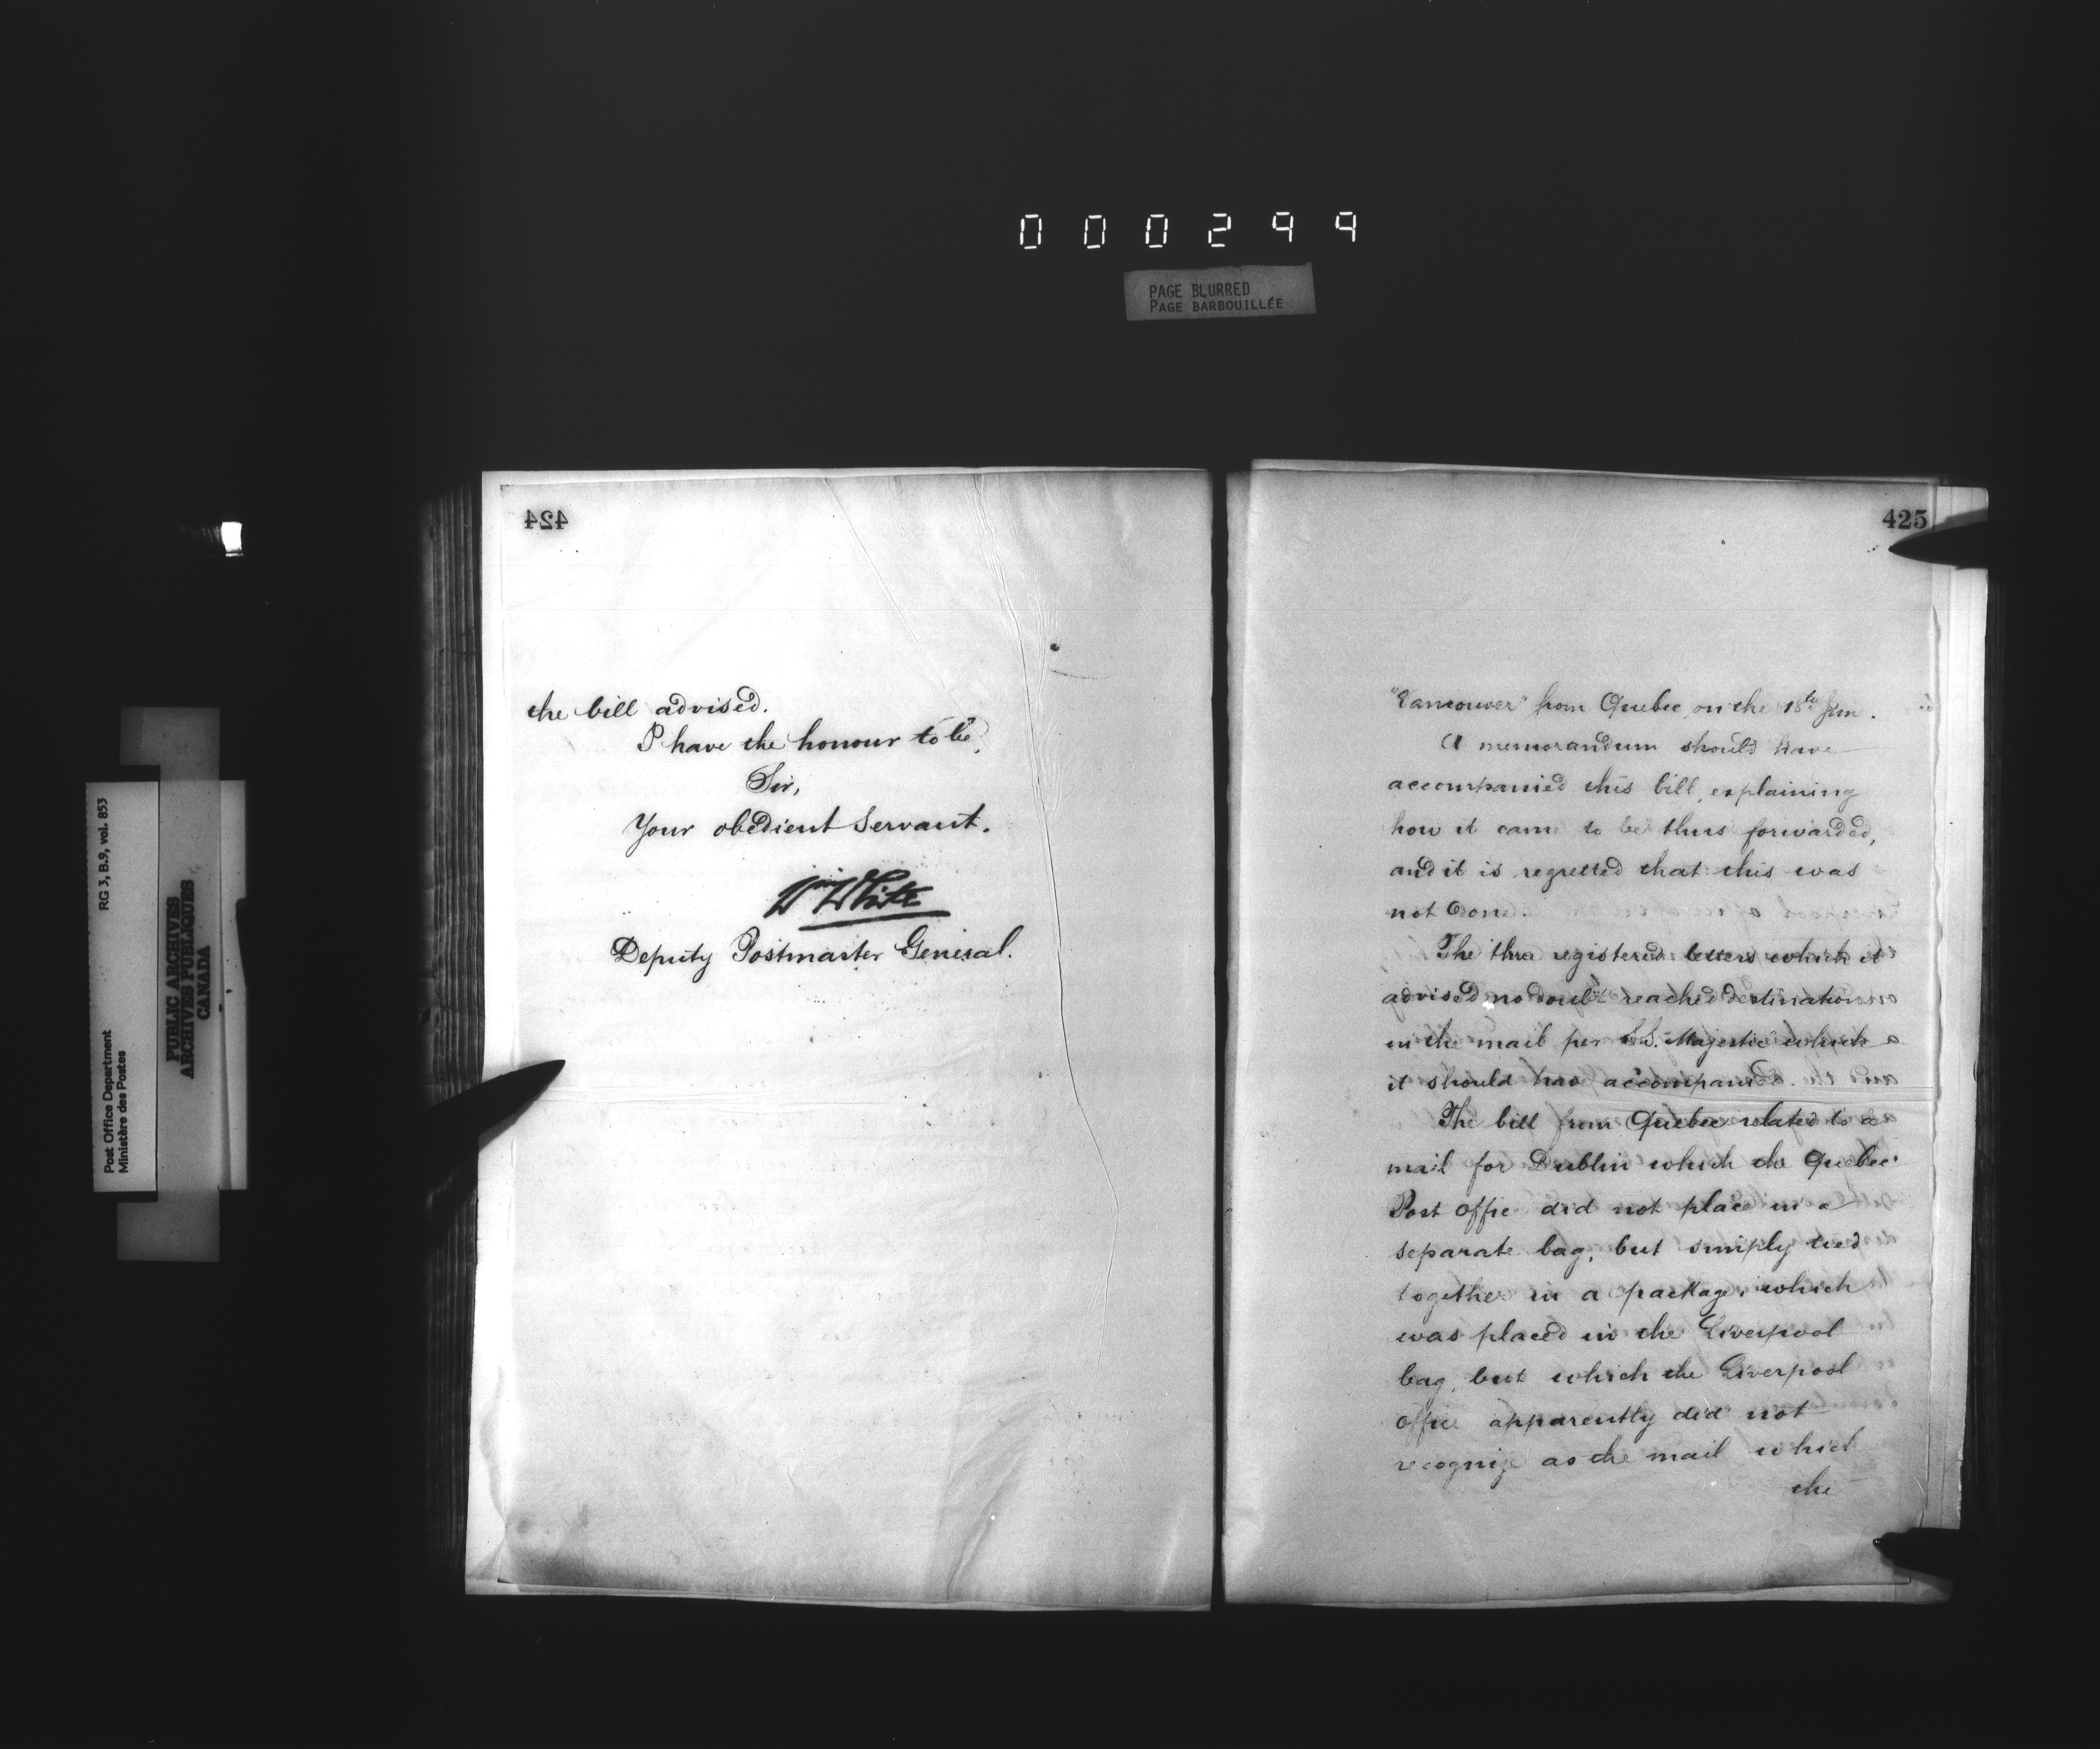 000299
PAGE BLURRED
PAGE BARBOUILLÉE
RG 3, B.9, vol. 853
Post Office Department
Ministère des Postes
PUBLIC ARCHIVES
ARCHIVES PUBLIQUES
CANADA
424
the bill advised.
I have the honour to be,
Sir,
Your obedient Servant.
Wm White
Deputy Postmaster General.
425
"Vancouver" from Quebec, on the 18th
A memorandum should have
accompanied this bill, explaining
how it came to be thus forwarded,
and it is regretted that this was
not done.
The three registered letters which it
advised no doubt reached destination
in the mail per S.S. Majestic which
it should have accompanied.
The bill from Quebec related to a
mail for Dublin which the Quebec
Post Office did not place in a
separate bag, but simply tied
together in a package, which
was placed in the Liverpool
bag, but which the Liverpool
office apparently did not
recognize as the mail which
the